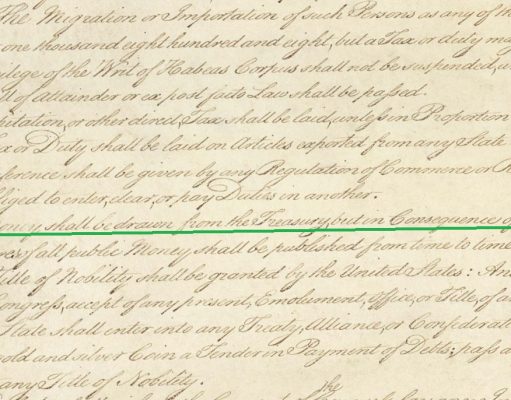 The Migration or Importation of such Persons as any of the
one thousand eight hundred and eight, but a Tax or duty may
ilege of the Writ of Habeas Corpus shall not be suspended, un
ll of Attainder or ex post facto Law shall be passed.
pitation, or other direct, Tax shall be laid, unless in Proportion
ax or Duty shall be laid on Articles exported from any State
eference shall be given by any Regulation of Commerce or R
bliged to enter, clear, or pay Duties in another.
oney shall be drawn from the Treasury, but in Consequence of
res of all public Money shall be published from time to time
Title of Nobility shall be granted by the United States: And
Congress, accept of any present, Emolument, Office, or Title, of an
State shall enter into any Treaty, Alliance, or Confederati
gold and silver Coin a Tender in Payment of Debts; pass a
any Title of Nobility.
the